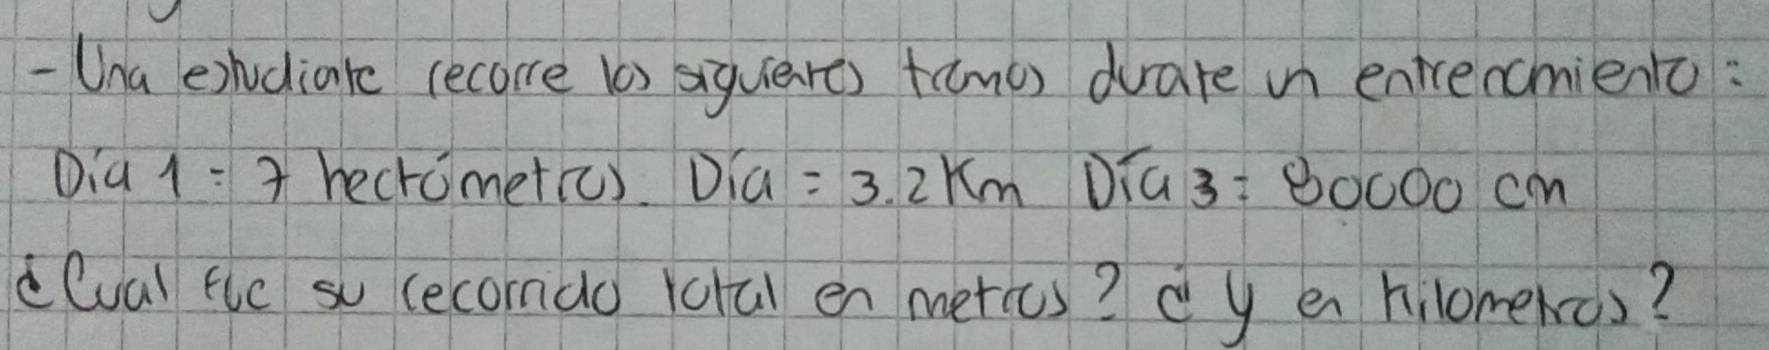 - Una estudiante recorre los siguientes tramos durate un entrenamiento:
Día 1 = 7 hectómetros. Día = 3.2 Km Día 3 = 80000 cm
¿Cual fue su recorrido total en metros? ¿y en kilometros?